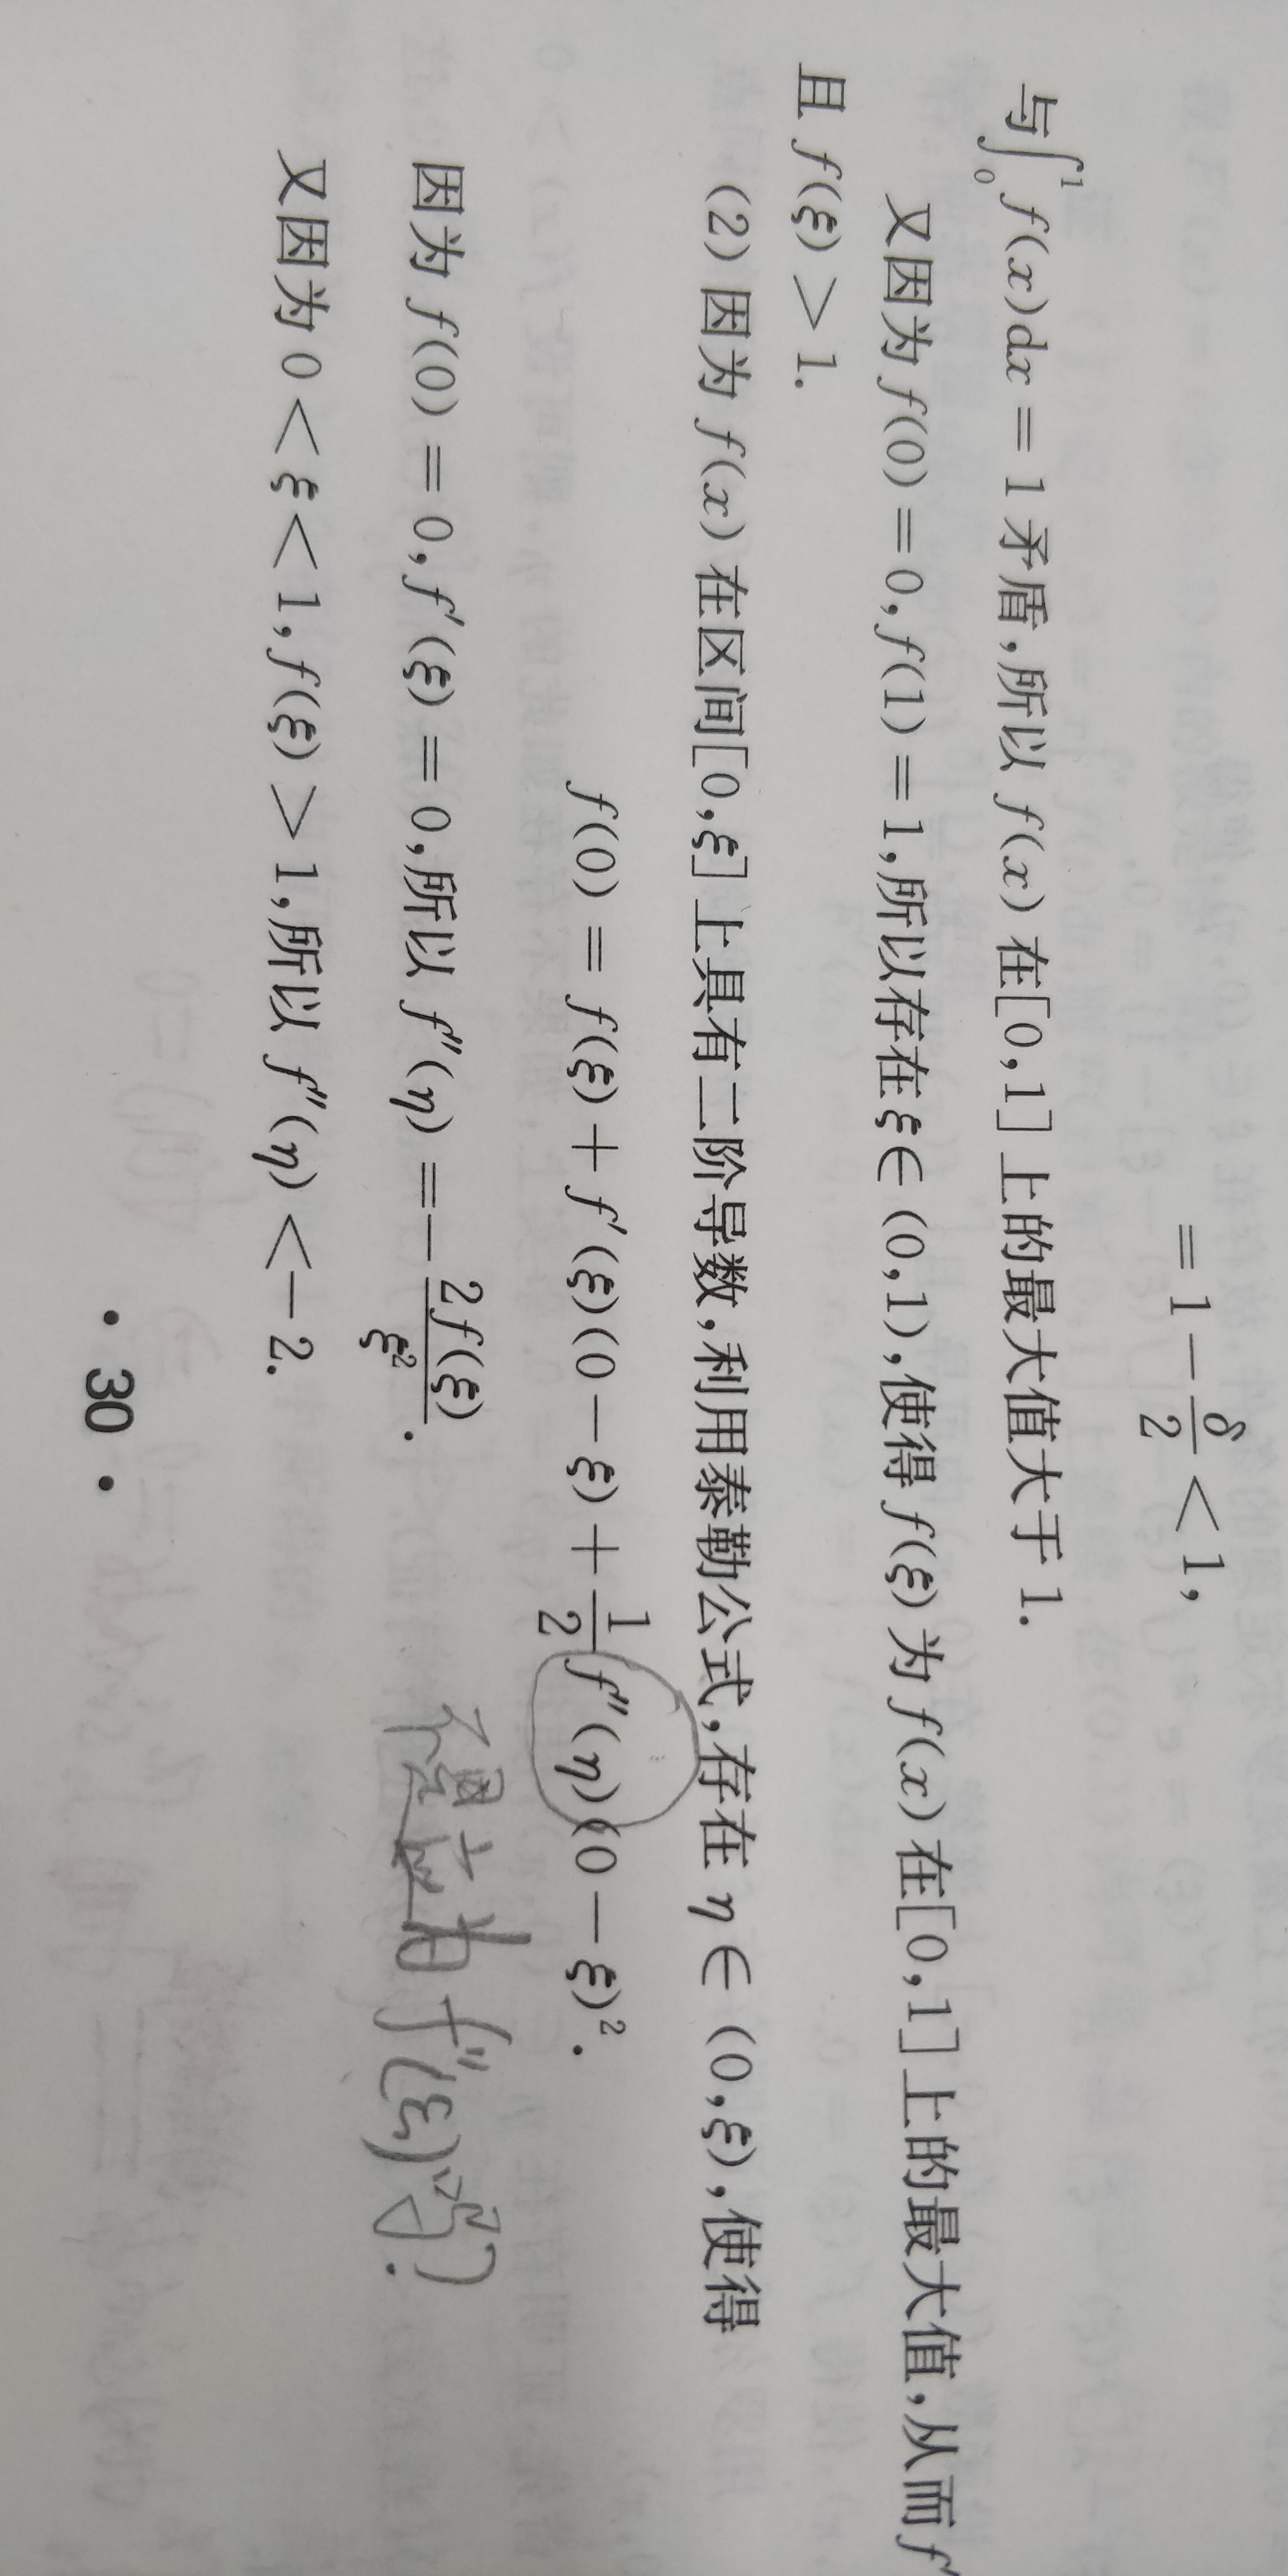 = 1 − δ/2 < 1,
与∫₀¹ f(x)dx = 1 矛盾,所以 f(x) 在[0,1] 上的最大值大于 1.
又因为 f(0) = 0, f(1) = 1,所以存在 ξ ∈ (0,1),使得 f(ξ) 为 f(x) 在[0,1] 上的最大值,从而 f′
且 f(ξ) > 1.
(2) 因为 f(x) 在区间[0,ξ] 上具有二阶导数,利用泰勒公式,存在 η ∈ (0,ξ),使得
f(0) = f(ξ) + f′(ξ)(0 − ξ) + 1/2 f″(η)(0 − ξ)².
因为 f(0) = 0, f′(ξ) = 0,所以 f″(η) = − 2f(ξ)/ξ².
不是应为 f″(ξ)吗?
又因为 0 < ξ < 1, f(ξ) > 1,所以 f″(η) < − 2.
· 30 ·